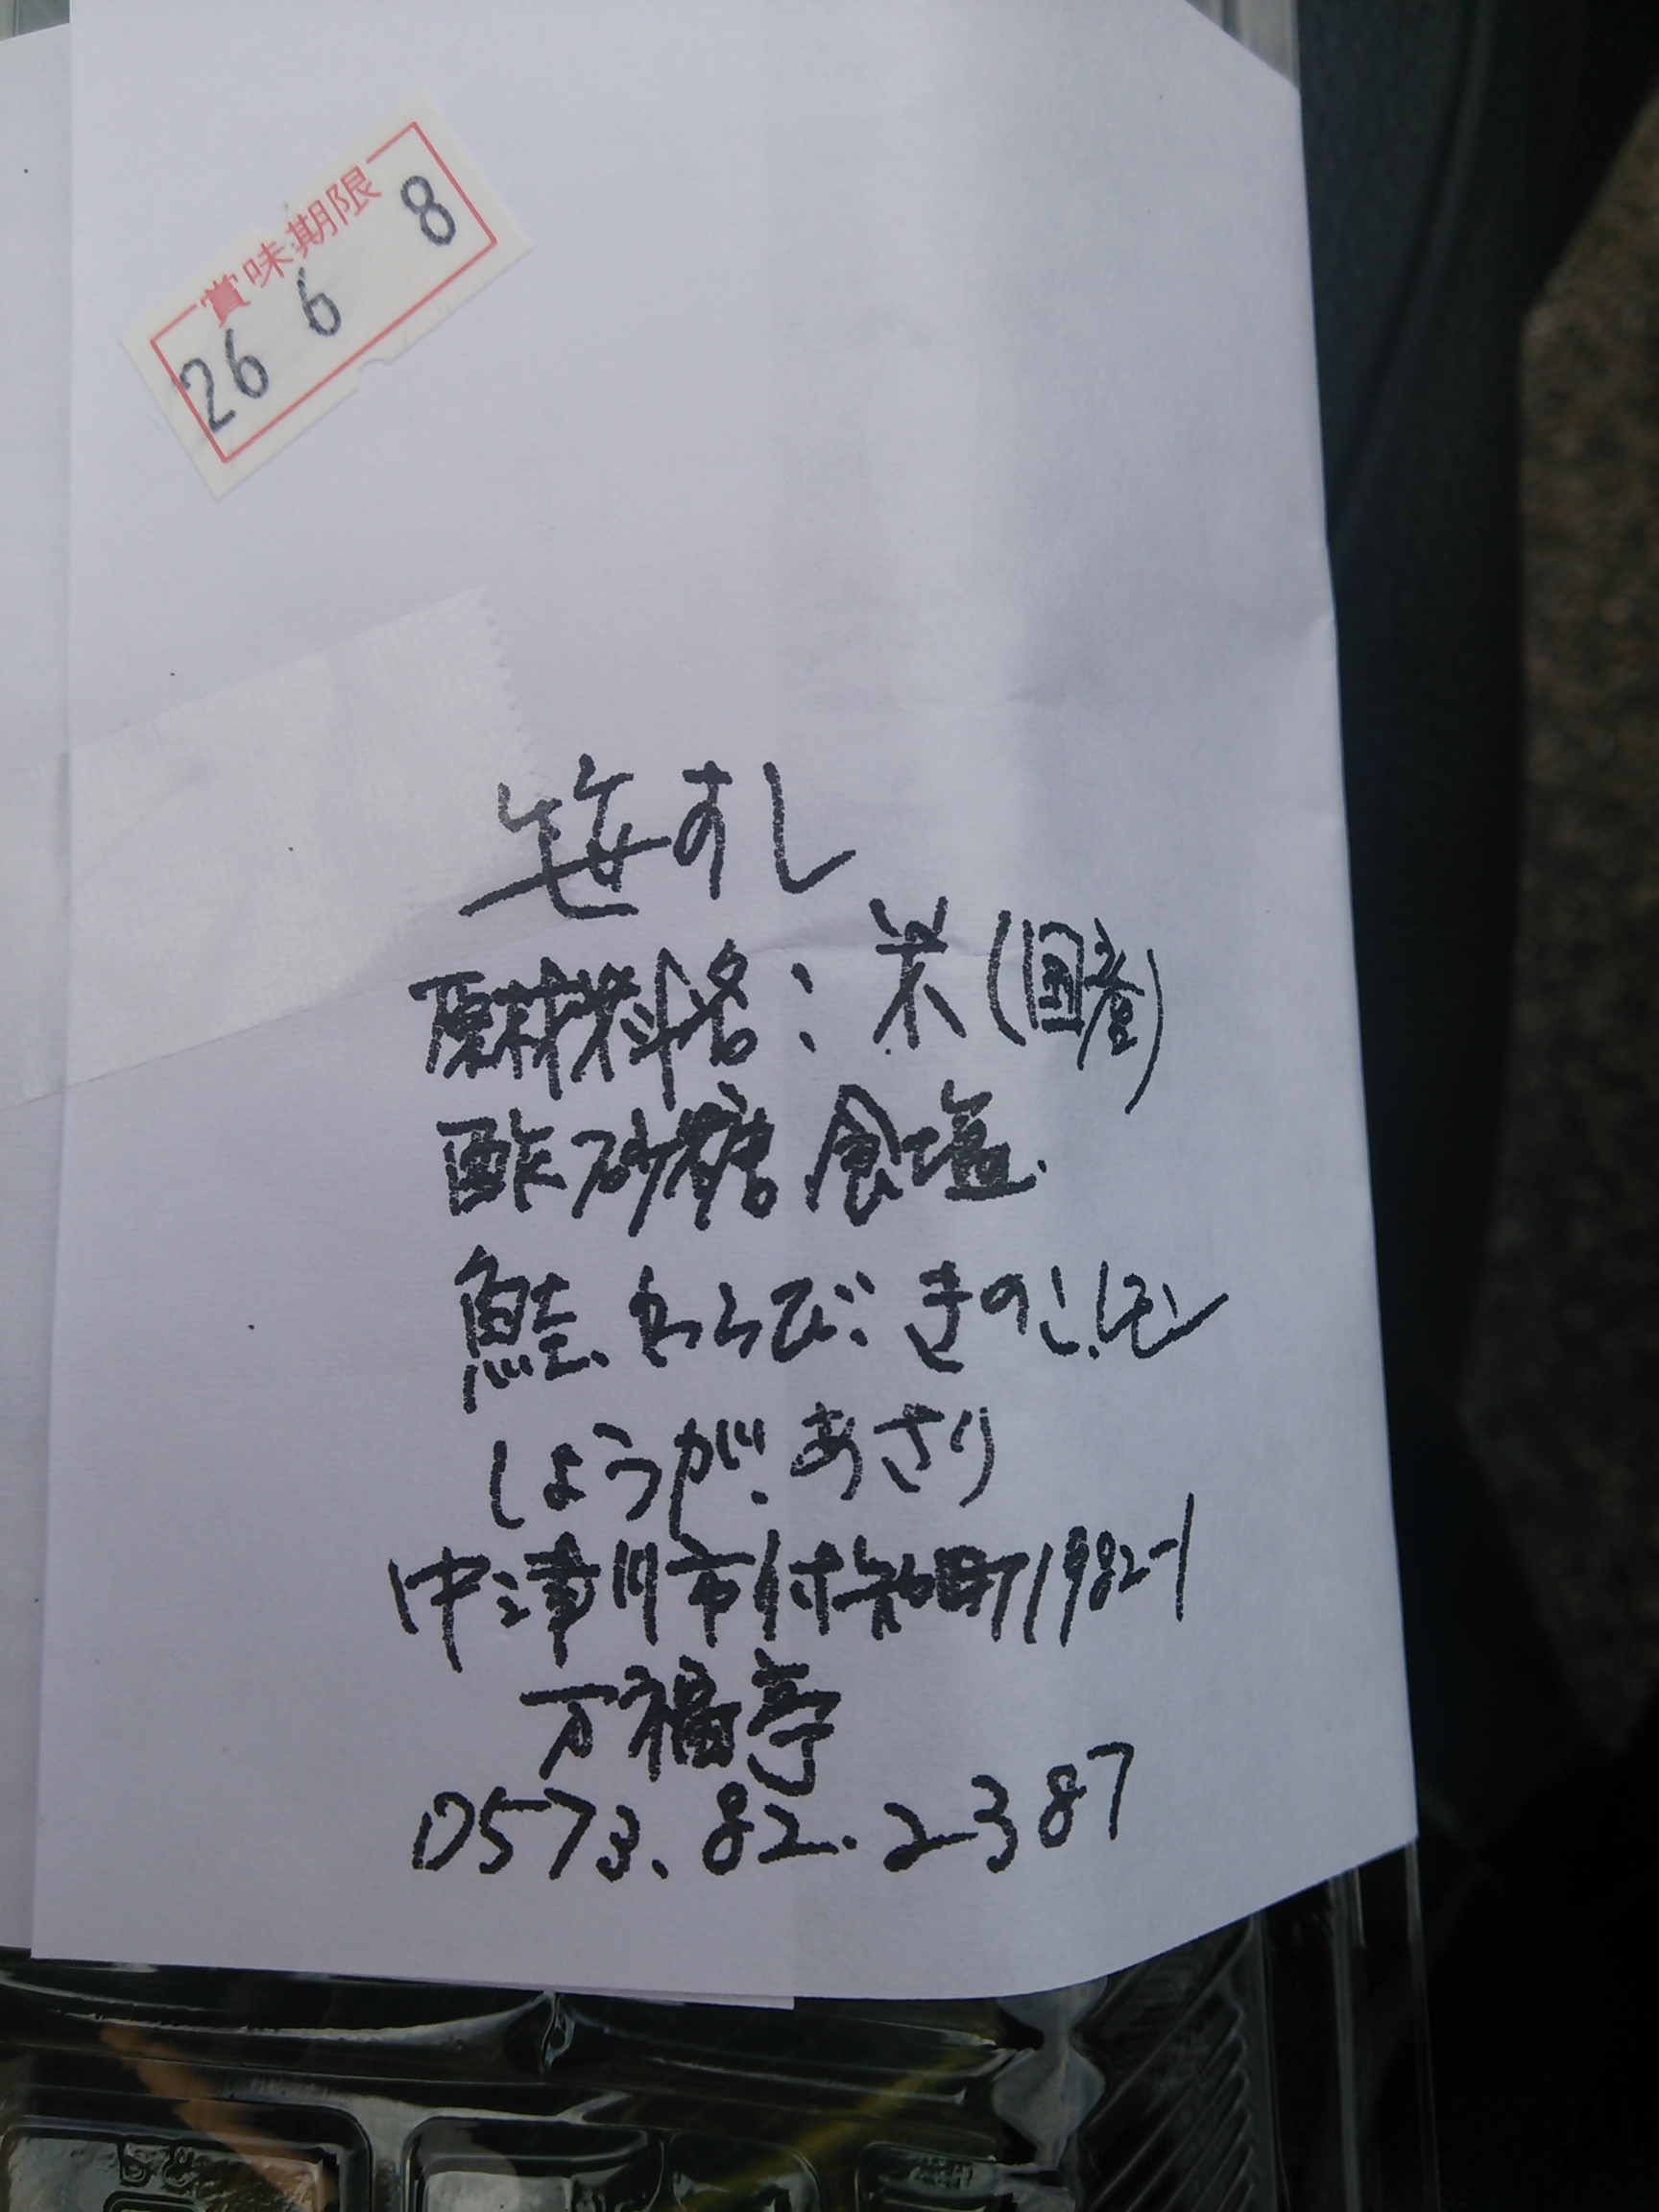 賞味期限
26 6 8
笹すし
原材料名:米(国産)
酢、砂糖、食塩、
鮭、わらび、きのこ、レモン
しょうが、あさり
中津川市付知町1982-1
万福亭
0573.82.2387